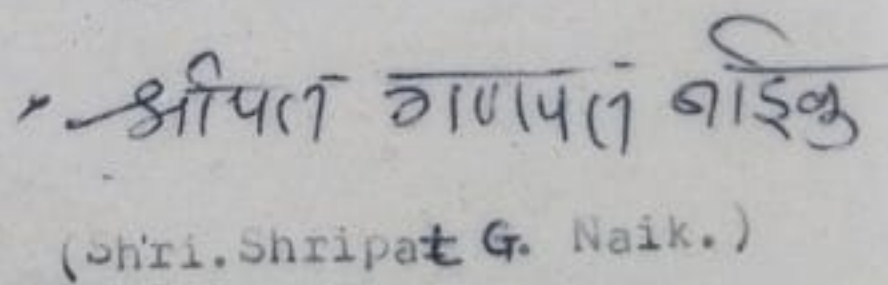 श्रीपत गणपत नाईक
(Shri.Shripat G. Naik.)